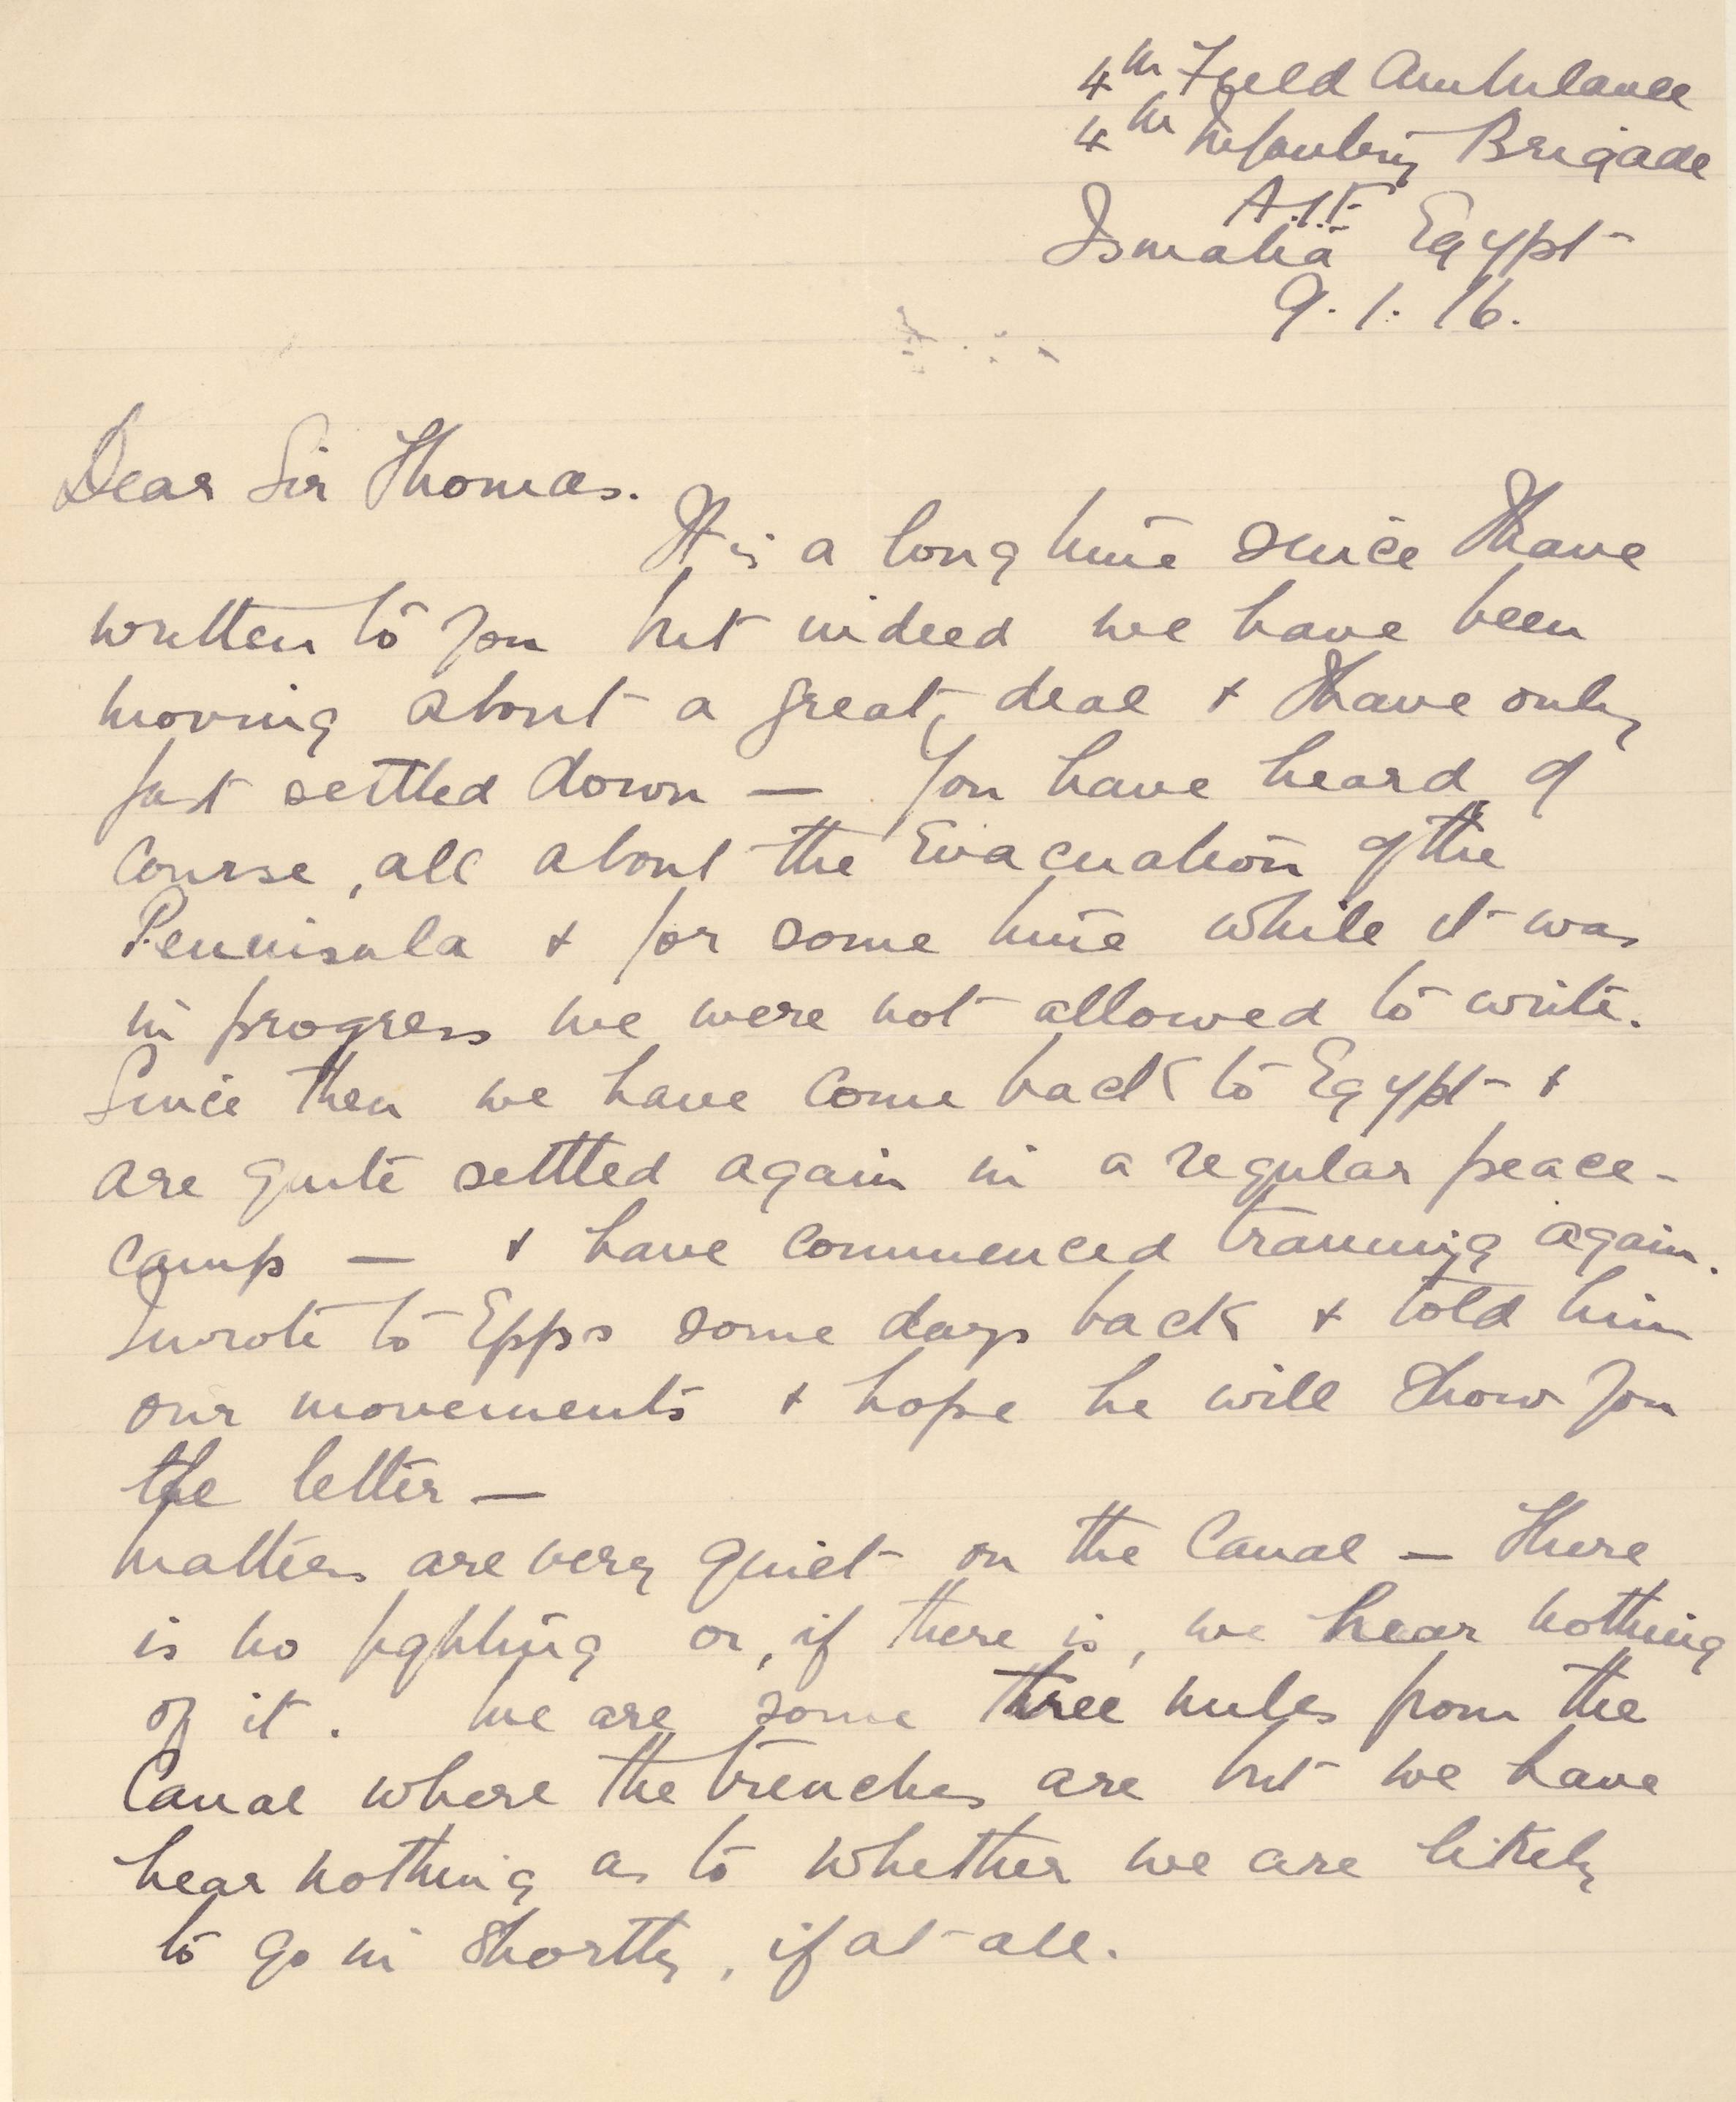 4th Field Ambulance
4th Infantry Brigade
A.I.F.
Ismalia Egypt
9.1.16.
Dear Sir Thomas.
It is a long time since I have
written to you but indeed we have been
moving about a great deal & I have only
just settled down — You have heard of
course, all about the Evacuation of the
Pennisula & for some time while it was
in progress we were not allowed to write.
Since then we have come back to Egypt &
are quite settled again in a regular peace-
camp — & have commenced training again.
I wrote to Epps some days back & told him
our movements & hope he will show you
the letter —
Matters are very quiet on the Canal — There
is no fighting or, if there is, we hear nothing
of it. We are some three miles from the
Canal where the trenches are but we have
hear nothing as to whether we are likely
to go in shortly, if at all.